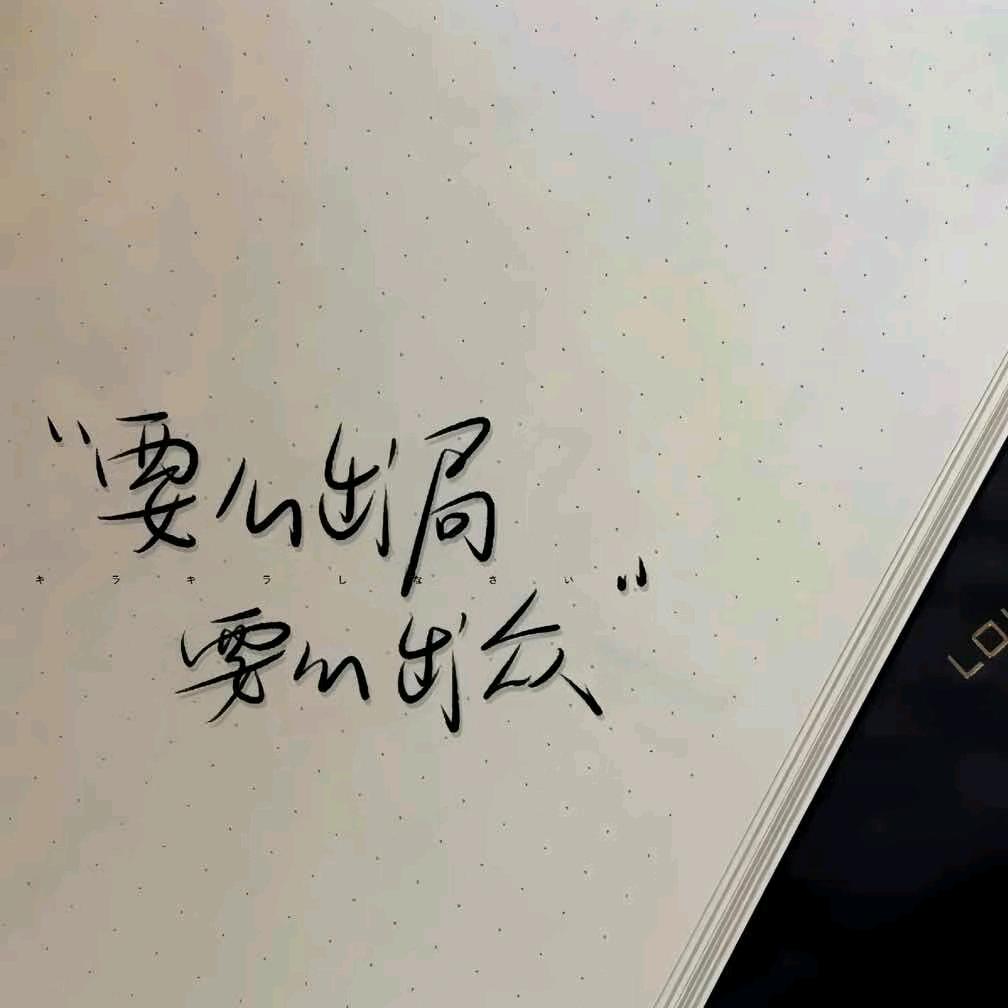 “要么出局
キラキラしなさい
要么出众”